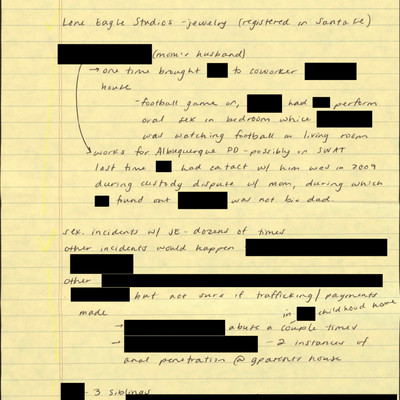 Lone Eagle Studios - jewelry (registered in Santa Fe)
(mom's husband)
→ one time brought to coworker
house
- football game on, had perform
oral sex in bedroom while
was watching football in living room
→ works for Albuquerque PD - possibly in SWAT
last time had catact w/ him was in 2009
during custody dispute w/ mom, during which
found out was not bio dad.
sex. incidents w/ JE - dozens of times
other incidents would happen
other
but not sure if trafficking/payments
made
in childhood home
→ abuse a couple times
→ - 2 instances of
anal penetration @ gparents house
- 3 siblings